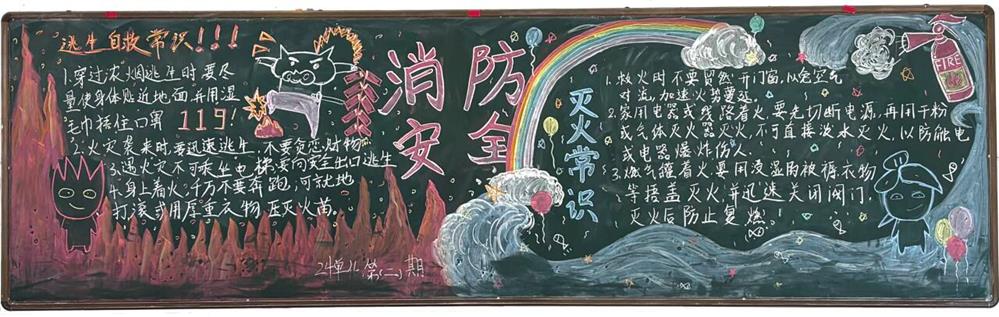 逃生自救常识!!!
1.穿过浓烟逃生时要尽
量使身体贴近地面并用湿
毛巾捂住口鼻 119!
2.火灾袭来时要迅速逃生,不要贪恋财物
3.遇火灾不可乘坐电梯要向安全出口逃生
4.身上着火,千万不要奔跑,可就地
打滚或用厚重衣物压灭火苗。
消防
安全
灭火常识
1.救火时不要贸然开门窗,以免空气
对流,加速火势蔓延
2.家用电器或线路着火,要先切断电源,再用干粉
或气体灭火器灭火,不可直接泼水灭火,以防触电
或电器爆炸伤人
3.燃气罐着火要用浸湿的被褥衣物
等捂盖灭火,并迅速关闭阀门,
灭火后防止复燃!
FIRE
第(二)期